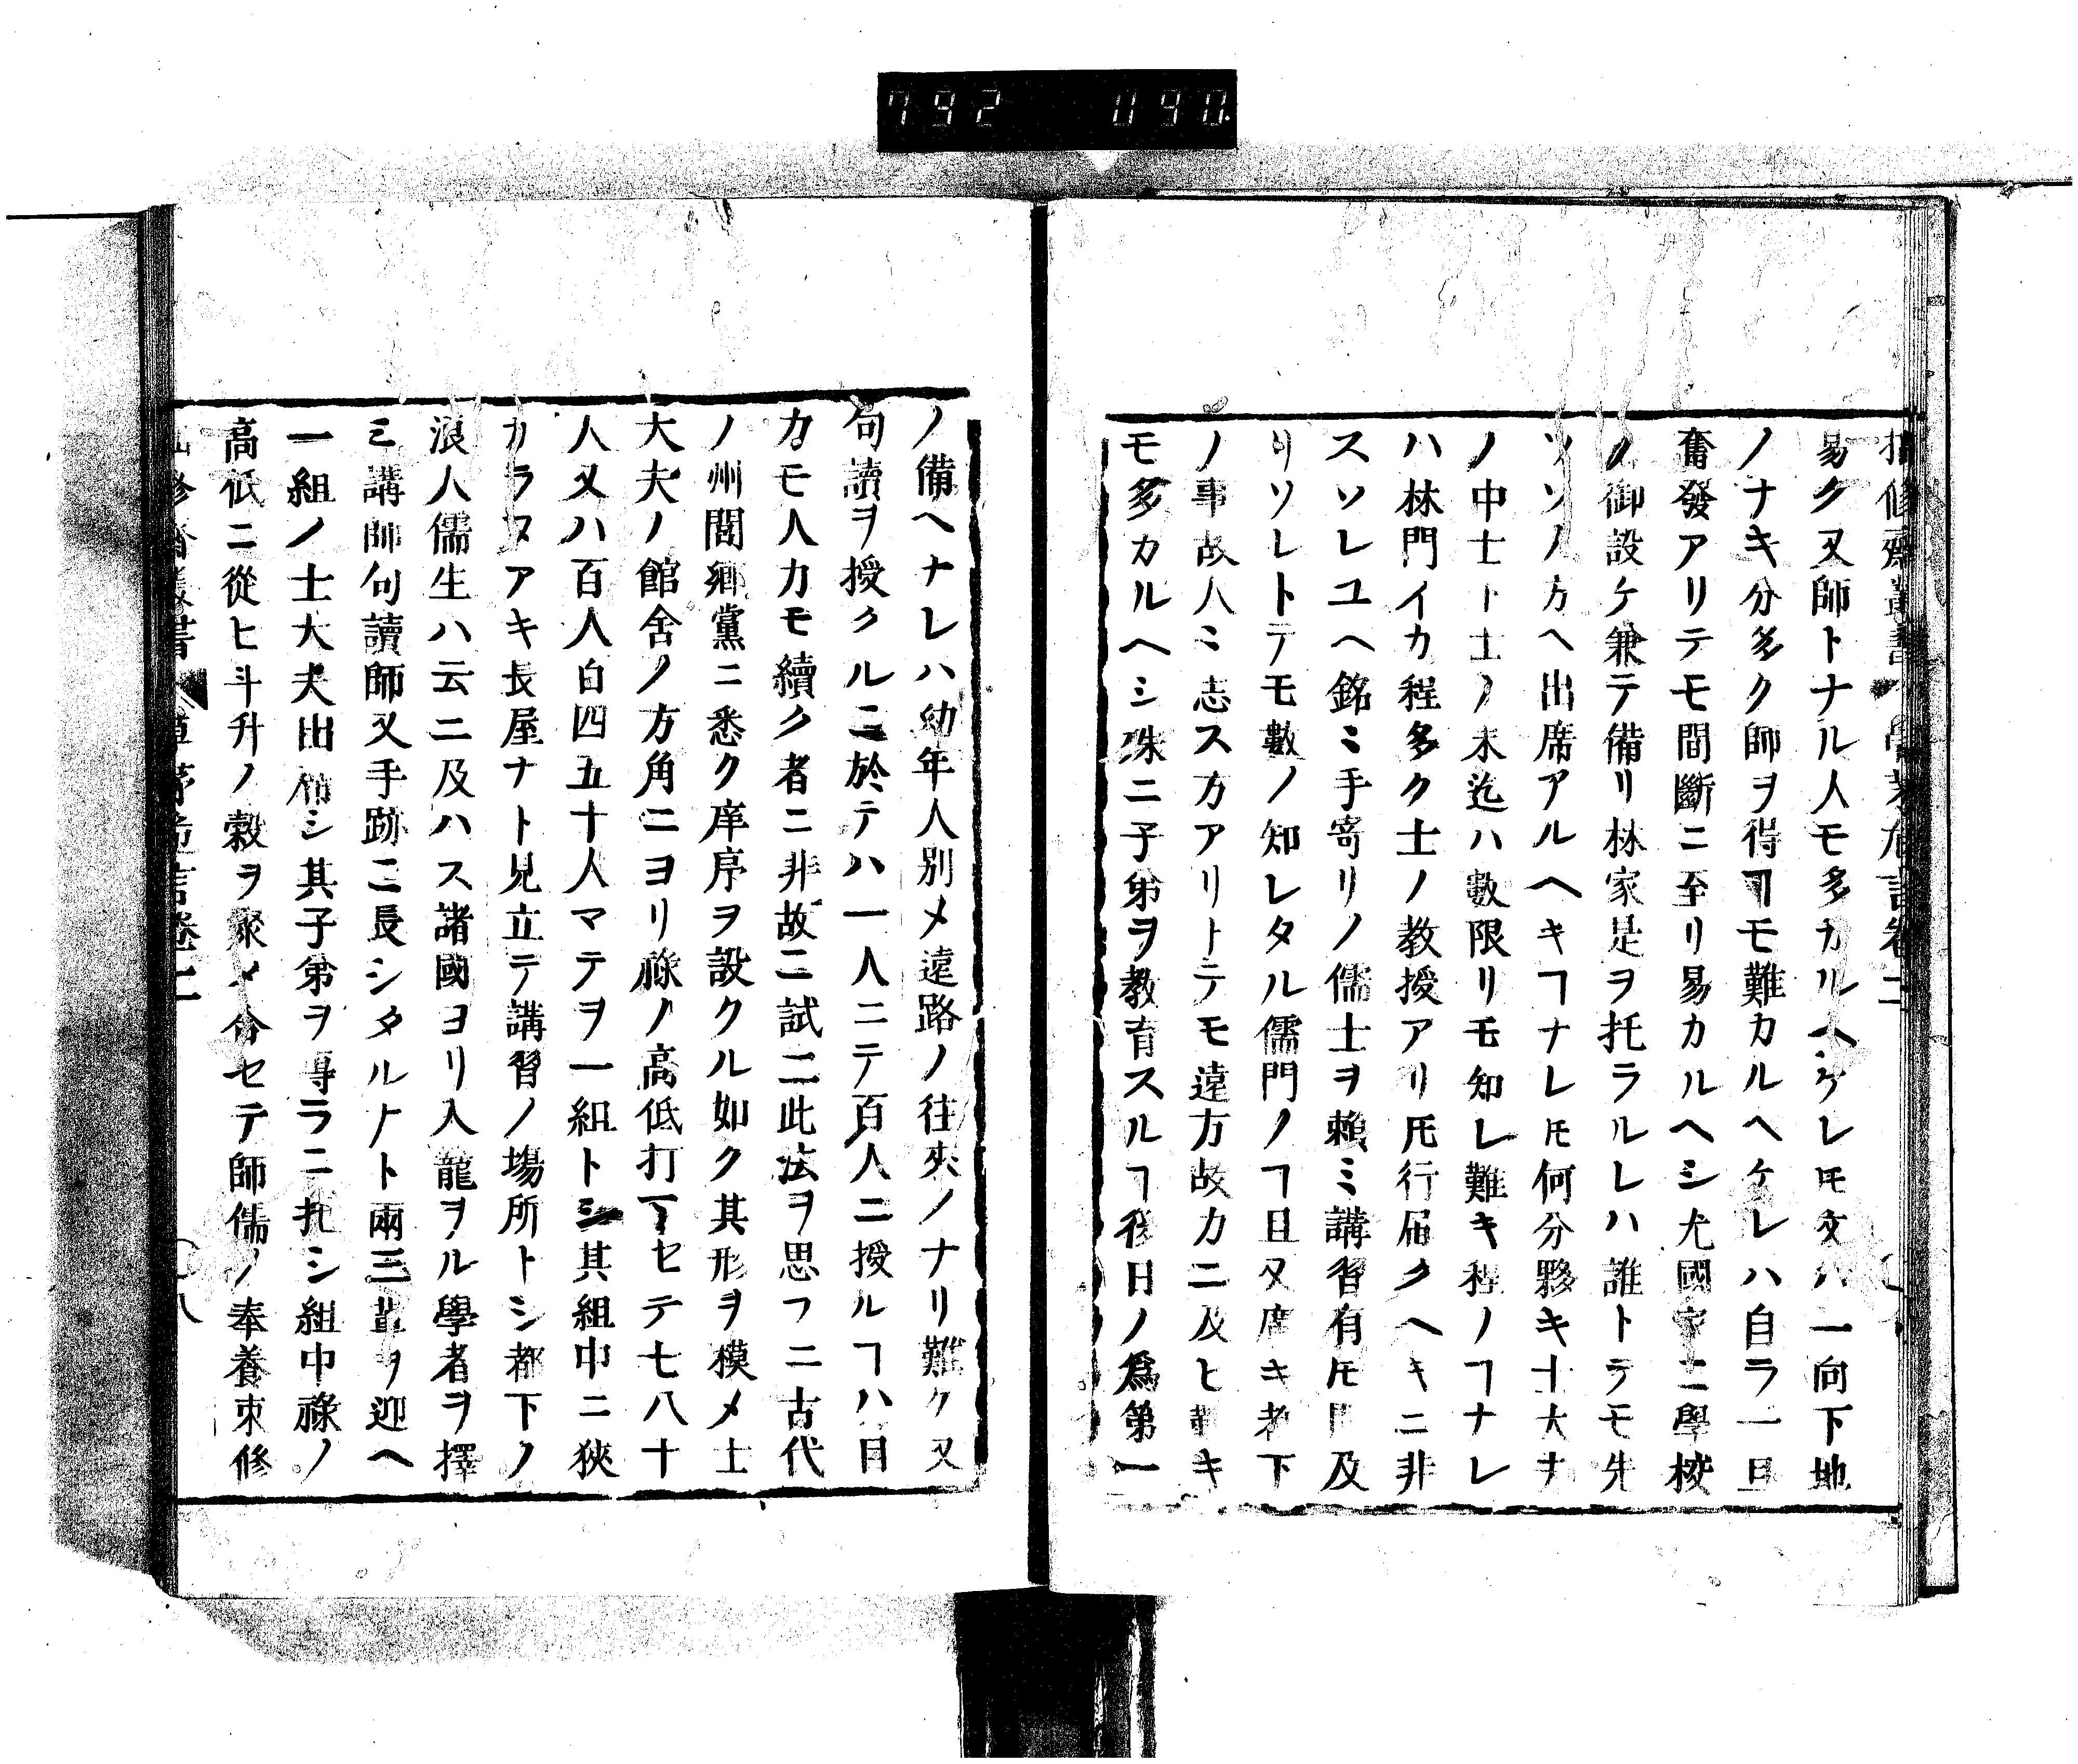 792 090
易ク又師トナル人モ多カルヘケレ𪜈文ハ一向下地
ノナキ分多ク師ヲ得ヿモ難カルヘケレハ自ラ一旦
奮發アリテモ間斷ニ至リ易カルヘシ尤國家ニ學校
ノ御設ケ兼テ備リ林家是ヲ托ラルレハ誰トテモ先
ソノ方ヘ出席アルヘキヿナレ𪜈何分夥キ士大ナ
ノ中士ト士ノ末迄ハ數限リモ知レ難キ程ノヿナレ
ハ林門イカ程多ク士ノ教授アリ𪜈行届クヘキニ非
スソレユヘ銘ミ手寄リノ儒士ヲ賴ミ講習有𪜈及
リソレトテモ數ノ知レタル儒門ノヿ且又席キ者下
ノ事故人ミ志スカアリトテモ遠方故カニ及ヒ難キ
モ多カルヘシ殊ニ子弟ヲ教育スルヿ後日ノ爲第一
ノ備ヘナレハ幼年人別メ遠路ノ往來ノナリ難ク又
句讀ヲ授クルニ於テハ一人ニテ百人ニ授ルヿハ目
カモ人カモ續ク者ニ非故ニ試ニ此法ヲ思フニ古代
ノ州閭鄕黨ニ悉ク庠序ヲ設クル如ク其形ヲ模メ士
大夫ノ館舍ノ方角ニヨリ祿ノ高低打マセテ七八十
人又ハ百人百四五十人マテヲ一組トシ其組中ニ狹
カラヌアキ長屋ナト見立テ講習ノ塲所トシ都下ノ
浪人儒生ハ云ニ及ハス諸國ヨリ入龍ヲル學者ヲ擇
ミ講師句讀師又手跡ニ長シタルナト兩三輩ヲ迎ヘ
一組ノ士大夫出席シ其子弟ヲ專ラニ托シ組中祿ノ
高低ニ從ヒ斗升ノ穀ヲ聚メ合セテ師儒ノ奉養束修
八